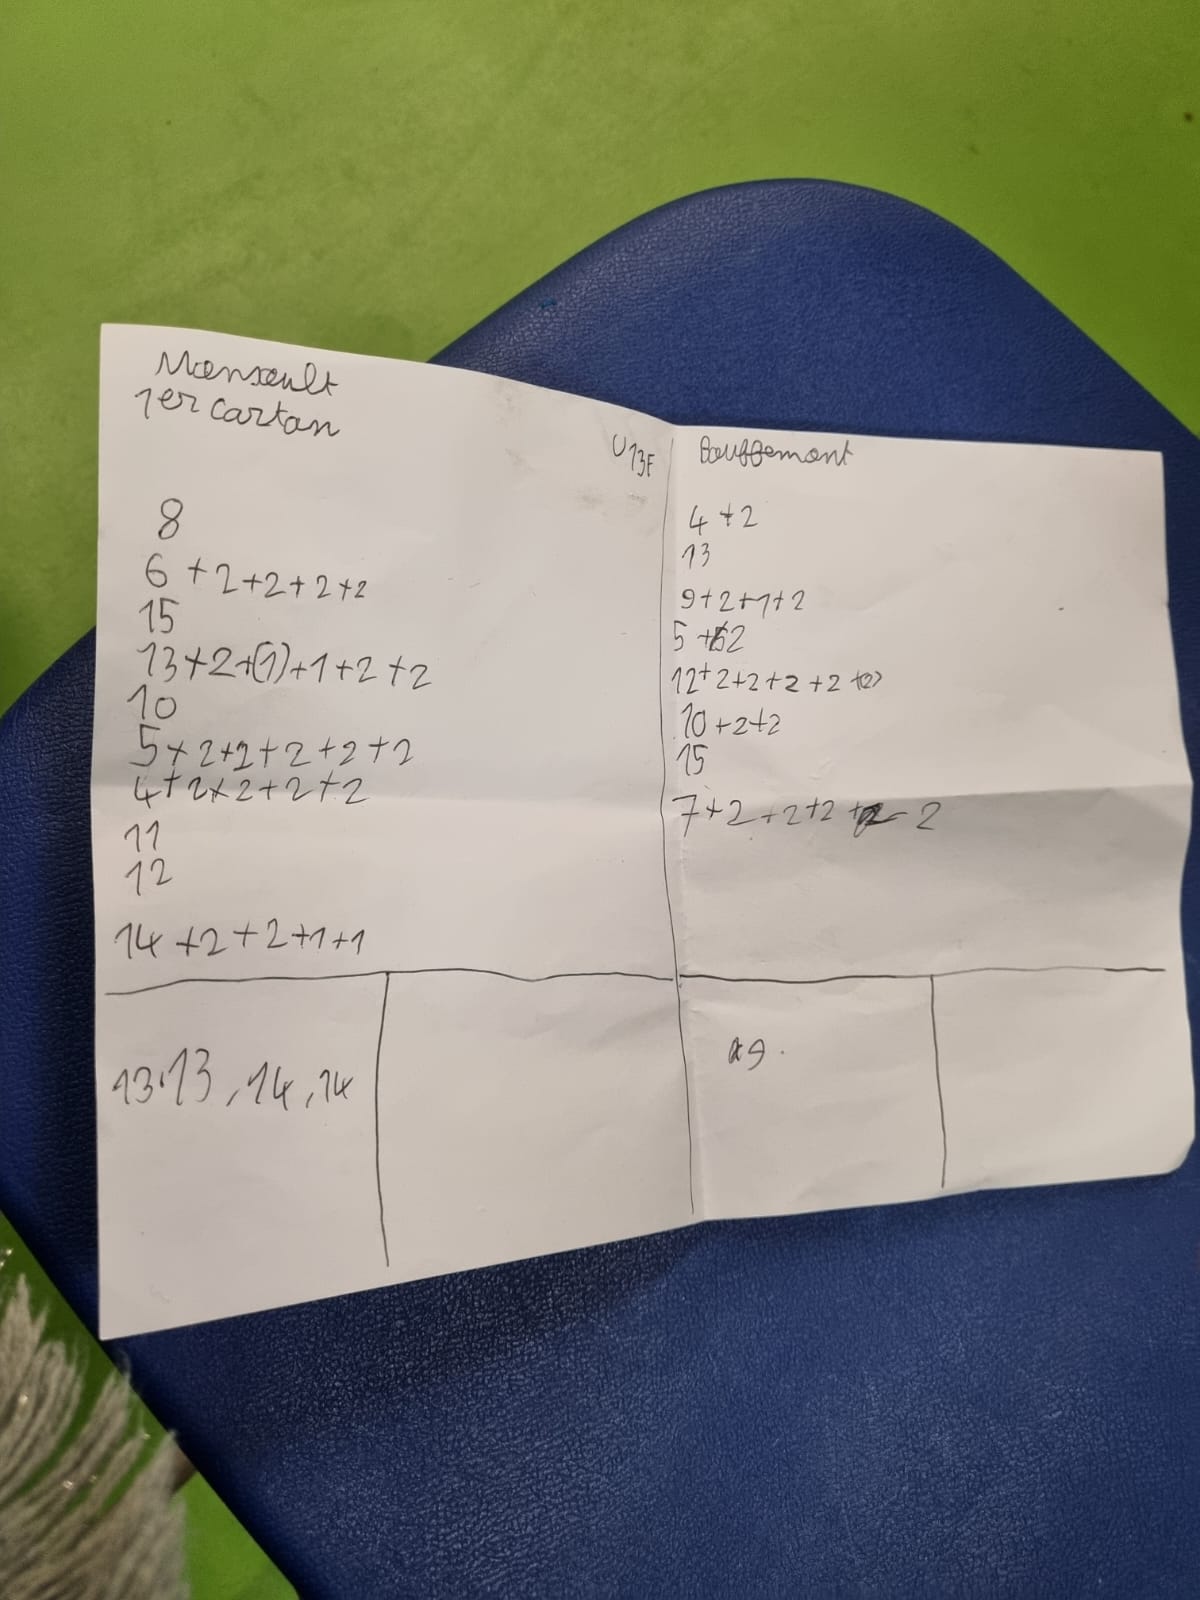 Mansault
1er cartan
8
6 +2+2+2+2
15
13+2+(1)+1+2+2
10
5+2+2+2+2+2
4+2+2+2+2
11
12
14+2+2+1+1
13.13,14,14
U13F
Bouffemont
4+2
13
9+2+1+2
5+2
12+2+2+2+2+(2)
10+2+2
15
7+2+2+2+2
9.